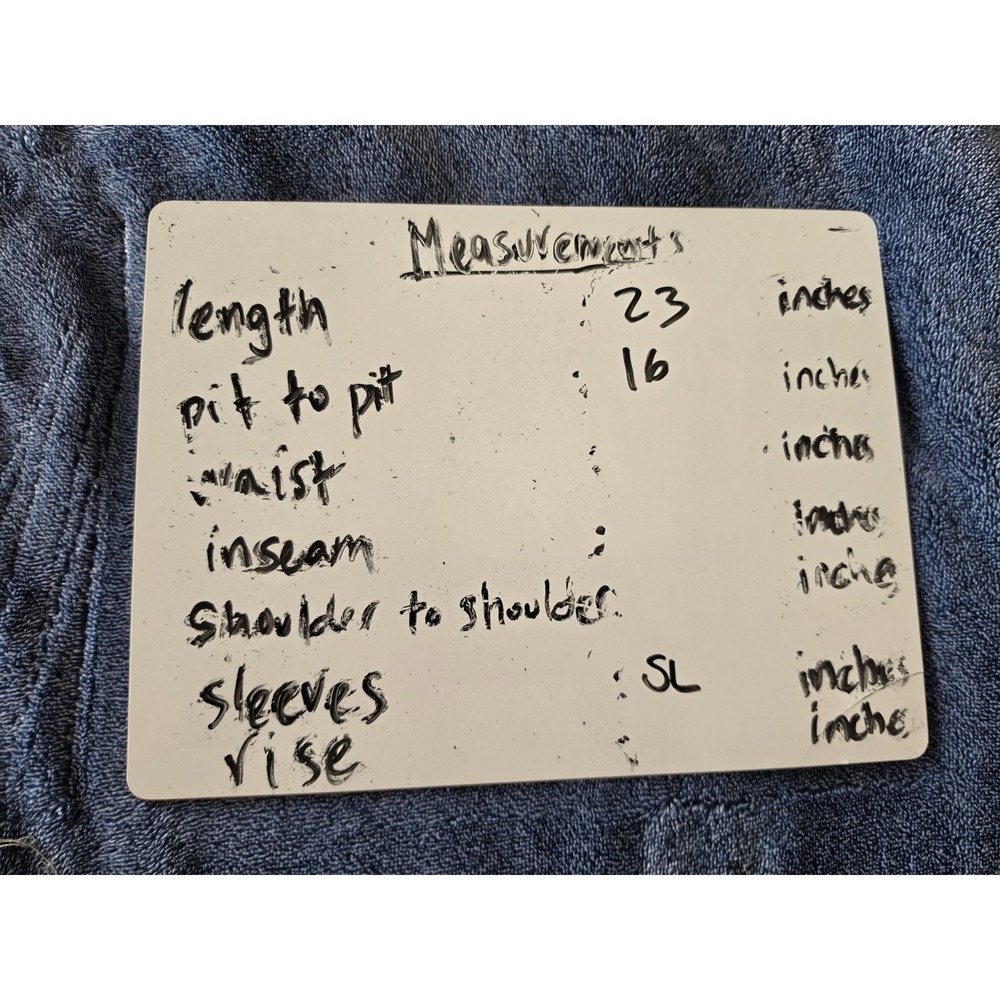 Measurements
length : 23 inches
pit to pit : 16 inches
waist : inches
inseam : inches
shoulder to shoulder : inches
sleeves : SL inches
rise : inches